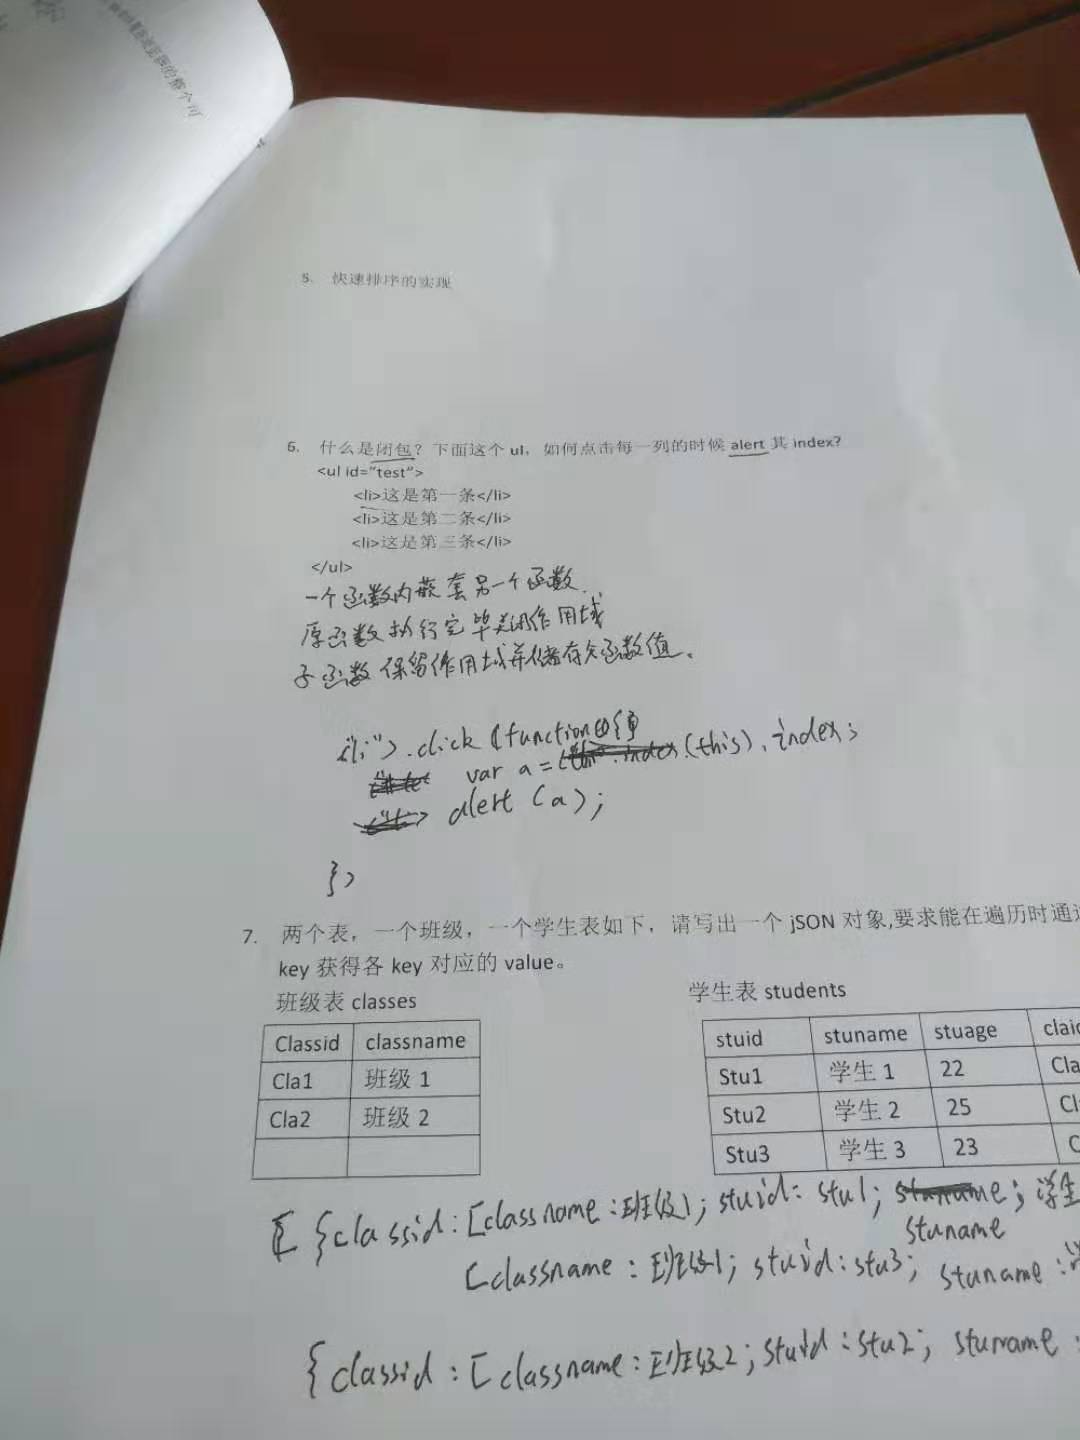 的整个可
5. 快速排序的实现
6. 什么是闭包？下面这个 ul，如何点击每一列的时候 alert 其 index?
<ul id="test">
<li>这是第一条</li>
<li>这是第二条</li>
<li>这是第三条</li>
</ul>
一个函数内嵌套另一个函数.
原函数执行完毕关闭作用域
子函数保留作用域并储存父函数值。
("li").click(function(){
var a = (this).index;
alert (a);
})
7. 两个表，一个班级，一个学生表如下，请写出一个 jSON 对象,要求能在遍历时通过
key 获得各 key 对应的 value。
班级表 classes 学生表 students
Classid classname
Cla1 班级 1
Cla2 班级 2
stuid stuname stuage
Stu1 学生 1 22
Stu2 学生 2 25
Stu3 学生 3 23
[ {classid: [classname:班级1; stuid: stu1; stuname; 学生
[classname: 班级1; stuid: stu3; stuname:
{classid: [classname: 班级2; stuid: stu2; stuname